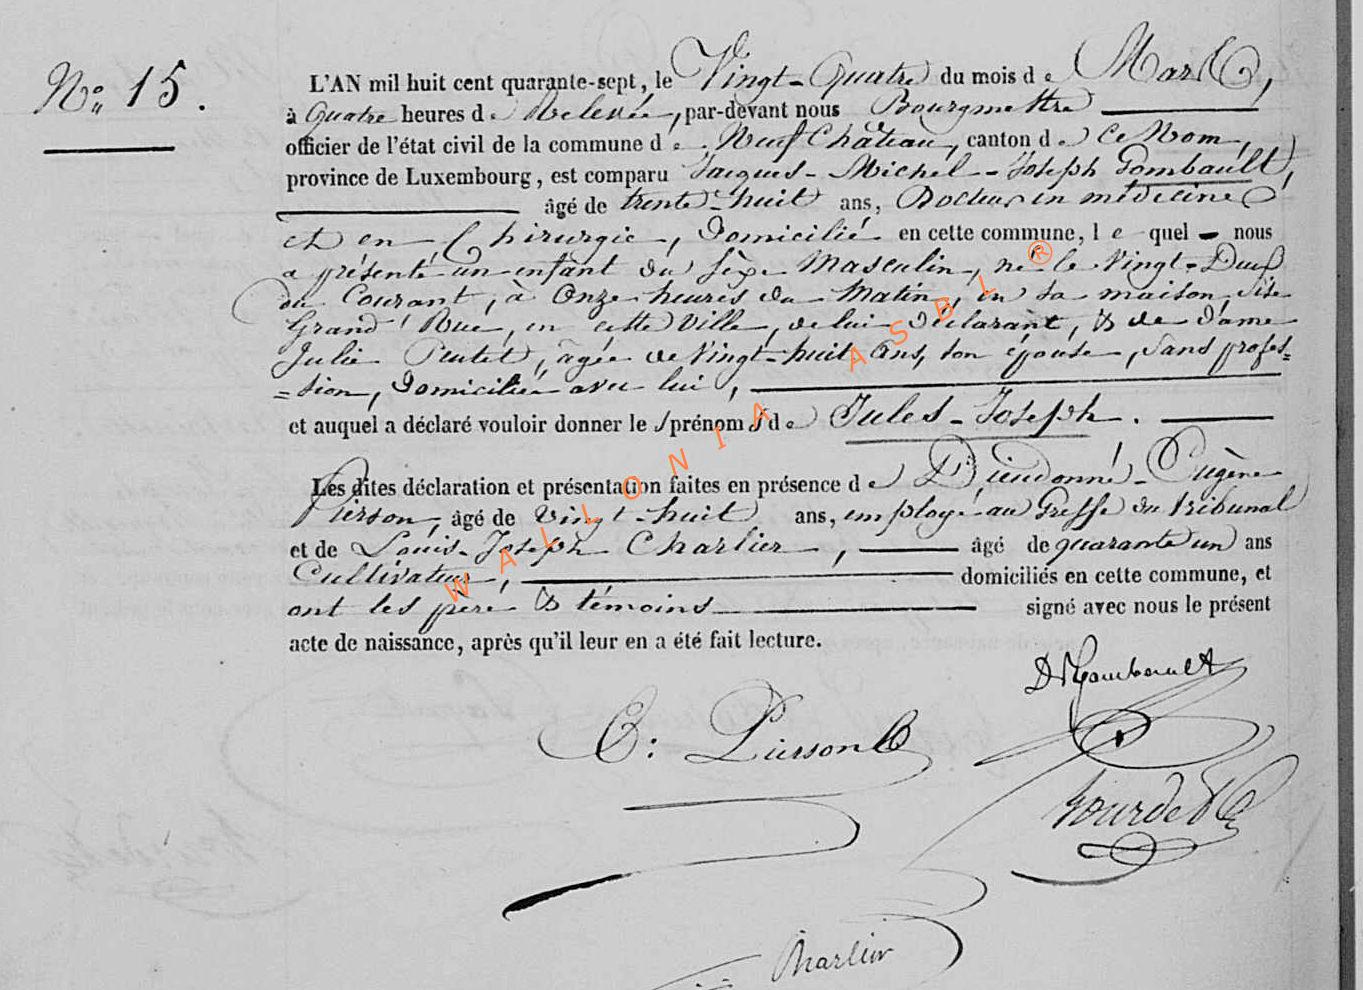 No 15.
L'AN mil huit cent quarante-sept, le Vingt-Quatre du mois de Mars,
à quatre heures de Relevée, par-devant nous Bourgmestre
officier de l'état civil de la commune de Neufchâteau, canton de ce Nom,
province de Luxembourg, est comparu Jacques-Michel-Joseph Gombault,
âgé de trente-huit ans, Docteur en médecine
et en Chirurgie, domicilié en cette commune, lequel nous
a présenté un enfant du sexe Masculin, né le Vingt-Deux
du Courant, à Onze heures du Matin, en sa maison, sise
Grand'Rue, en cette Ville, de lui Déclarant, & de dame
Julie, âgée de Vingt-huit ans, son épouse, sans profes=
=sion, domiciliée avec lui,
et auquel a déclaré vouloir donner les prénoms de Jules-Joseph.
Les dites déclaration et présentation faites en présence de Dieudonné-Eugène
Pierson, âgé de Vingt-huit ans, employé au Greffe du tribunal
et de Louis-Joseph Charlier, âgé de quarante un ans
Cultivateur, domiciliés en cette commune, et
ont les père & témoins signé avec nous le présent
acte de naissance, après qu'il leur en a été fait lecture.
Gombault
E: Pierson
Gourdet
Charlier
WALLONIA ASBL ®